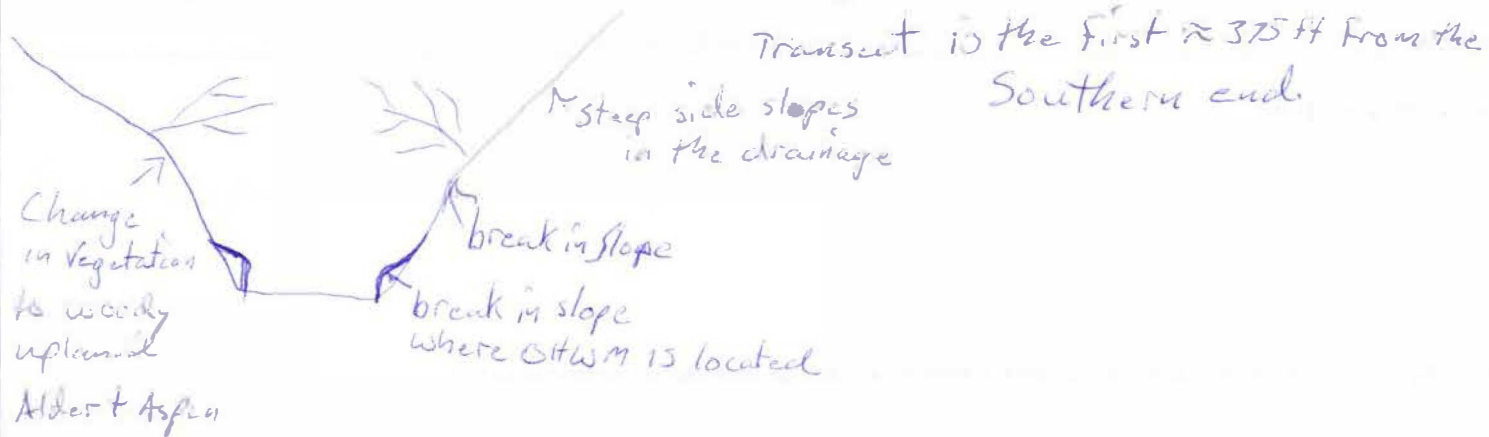 Transect is the first ≈ 375 ft from the
Southern end.
Steep side slopes
in the drainage
Change
in Vegetation
to woody
upland
Alder + Aspen
break in slope
break in slope
where OHWM is located